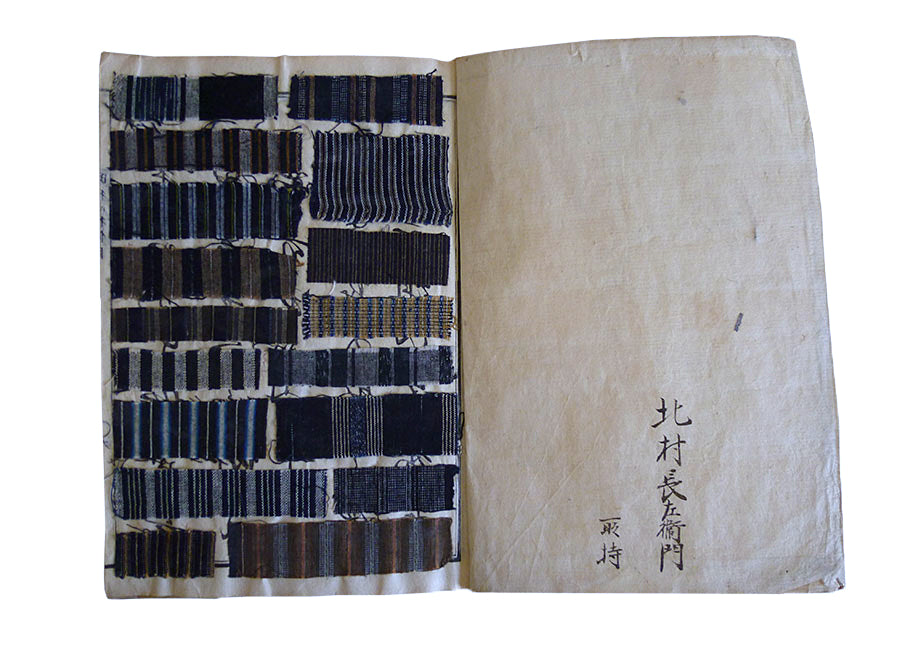 北村長左衛門
所持